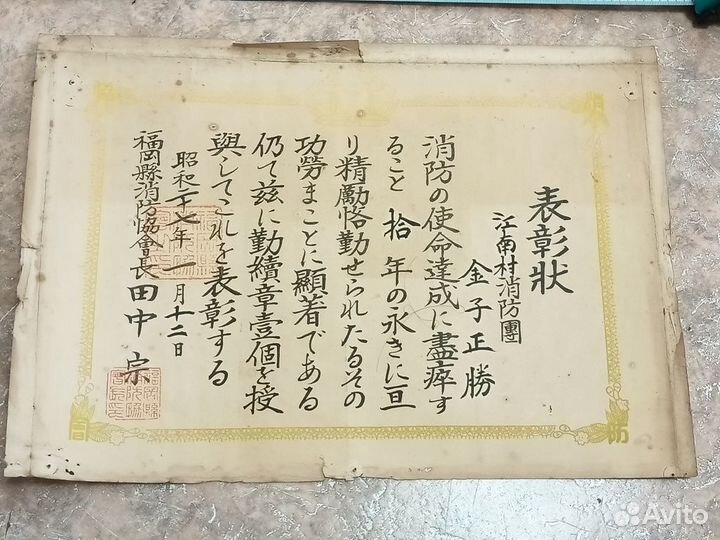 表彰状
江南村消防團
金子正勝
消防の使命達成に盡瘁す
ること拾年の永きに亘
り精勵恪勤せられたるその
功勞まことに顯著である
仍て茲に勤續章壹個を授
與してこれを表彰する
昭和二十七年一月十二日
福岡縣消防協會長田中宗
防
Avito